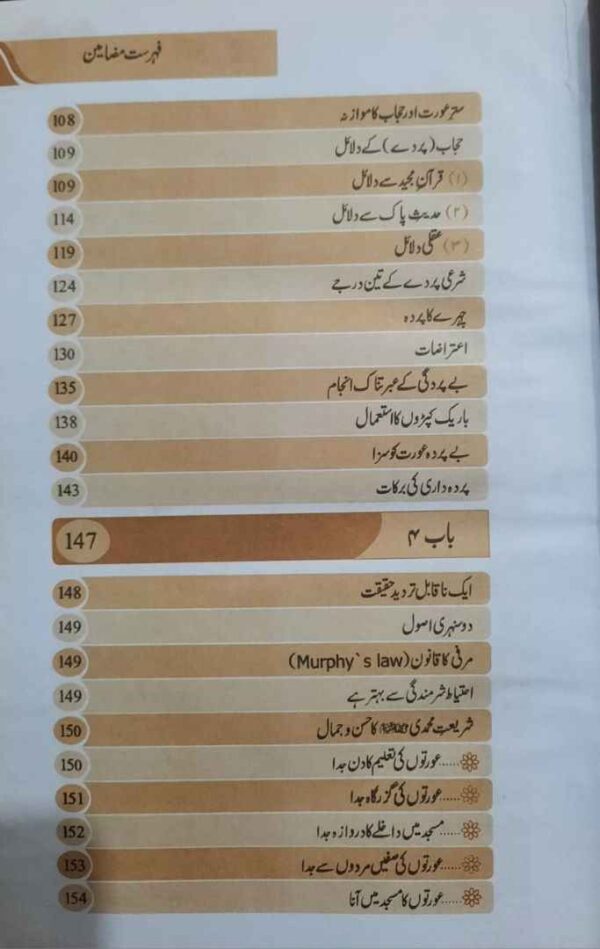 فہرست مضامین
ستر عورت اور حجاب کا موازنہ 108
حجاب (پردے) کے دلائل 109
(۱) قرآن مجید سے دلائل 109
(۲) حدیث پاک سے دلائل 114
(۳) عقلی دلائل 119
شرعی پردے کے تین درجے 124
چہرے کا پردہ 127
اعتراضات 130
بے پردگی کے عبرتناک انجام 135
باریک کپڑوں کا استعمال 138
بے پردہ عورت کو سزا 140
پردہ داری کی برکات 143
باب ۴ 147
ایک ناقابل تردید حقیقت 148
دو سنہری اصول 149
مرفی کا قانون (Murphy`s law) 149
احتیاط شرمندگی سے بہتر ہے 149
شریعت محمدی ﷺ کا حسن و جمال 150
.....عورتوں کی تعلیم کا دن جدا 150
.....عورتوں کی گزرگاہ جدا 151
.....مسجد میں داخلے کا دروازہ جدا 152
.....عورتوں کی صفیں مردوں سے جدا 153
.....عورتوں کا مسجد میں آنا 154